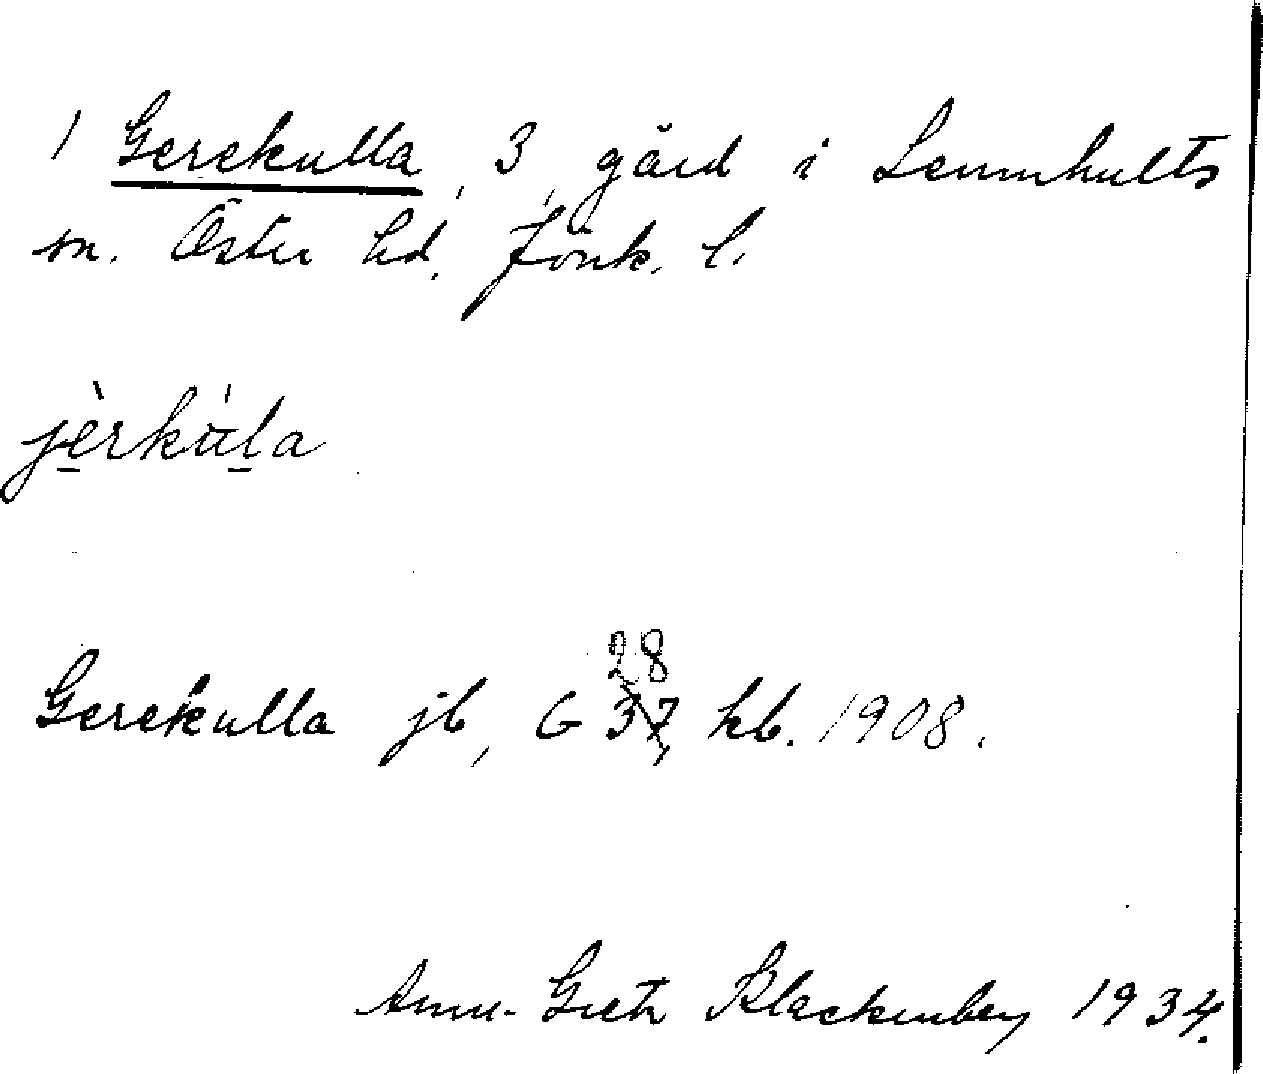 1 Gerekulla, 3, gård i Lemnhults
sn. Öster hd. Jönk. l.
jèrkúla
Gerekulla jb, G 28 37, kb. 1908.
Ann-Greta Klackenberg 1934.